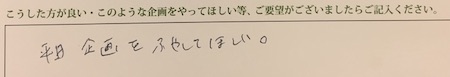 こうした方が良い・このような企画をやってほしい等、ご要望がございましたらご記入ください。
平日 企画をふやしてほしい。